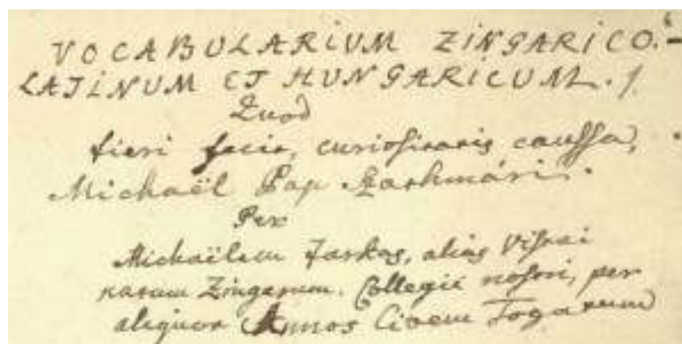 VOCABULARIUM ZINGARICO.-
LATINUM ET HUNGARICUM.
Quod
fieri fecit, curiositatis caussa,
Michaël Pap Szathmári.
Per
Michaëlem Farkas, alias Vistai
natum Zingarum. Collegii nostri, per
aliquot Annos Civem Togatum